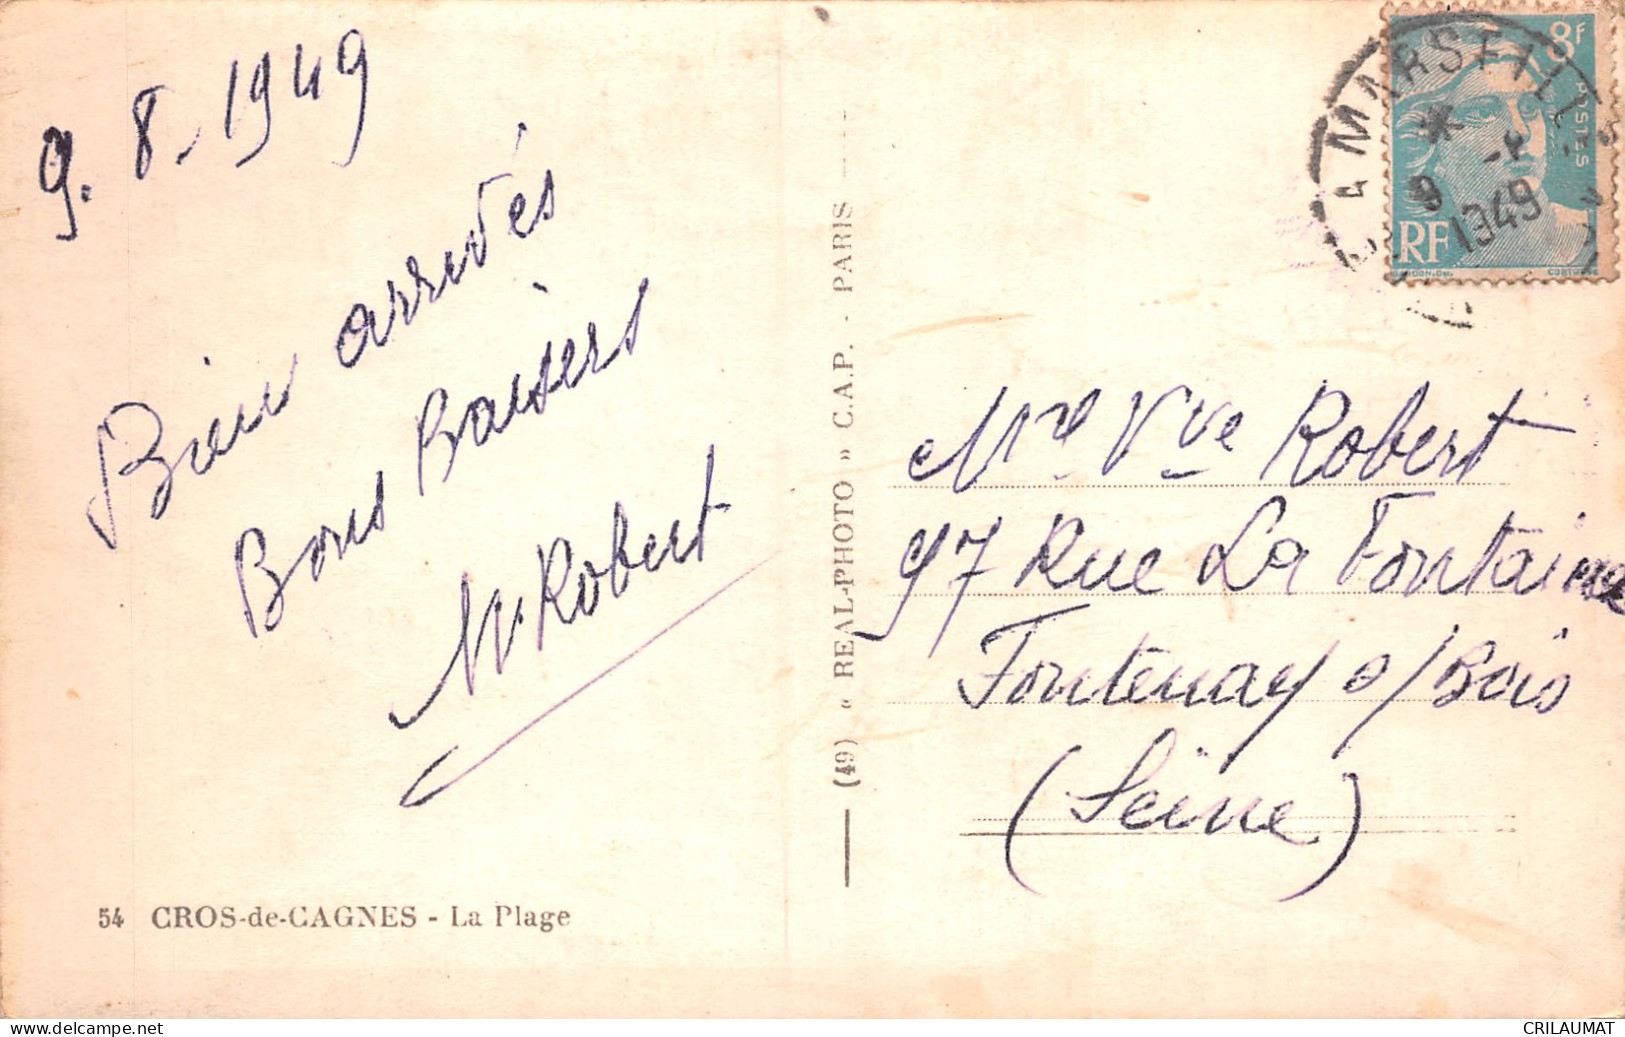 9. 8. 1949
Bien arrivés
Bons Baisers
M. Robert
54 CROS-de-CAGNES - La Plage
(49) « REAL-PHOTO » C.A.P. - PARIS
8F
POSTES
RF
MARSEILLE
9 -8
1949
Vve Robert
97 Rue La Fontaine
Fontenay s/Bois
(Seine)
CRILAUMAT
www.delcampe.net